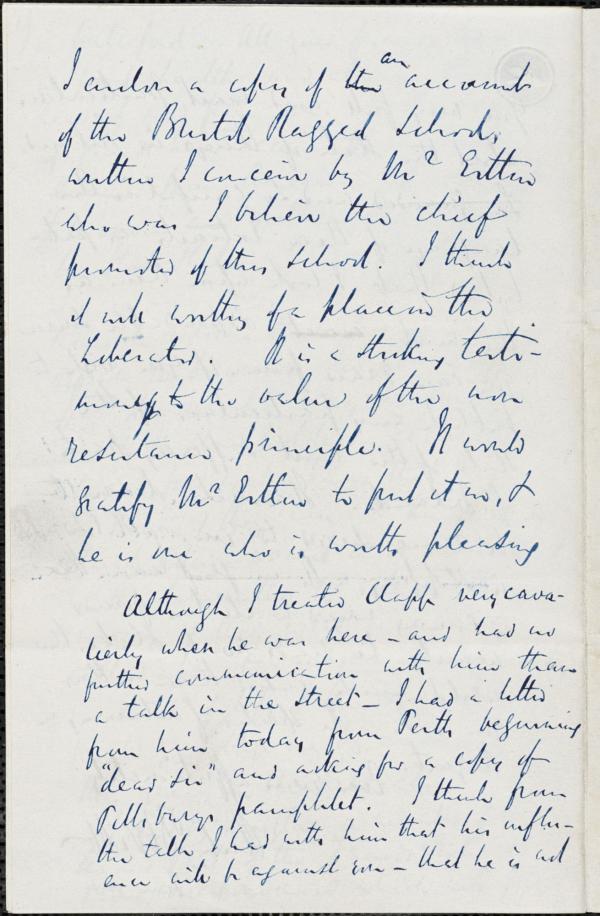 I enclose a copy of the an account
of the Bristol Ragged School,
written I conceive by Mr Estlin
who was I believe the chief
promoter of this School. I think
it well worthy of a place in the
Liberator. It is a striking testi-
mony to the value of the non
resistance principle. It would
gratify Mr Estlin to put it in, &
he is one who is worth pleasing
Although I treated Clapp very cava-
lierly when he was here - and had no
further communication with him than
a talk in the street - I had a letter
from him today from Perth beginning
"dear Sir" and asking for a copy of
Pillsbury's pamphlet. I think from
the talk I had with him that his influ-
ence will be against - that he is not